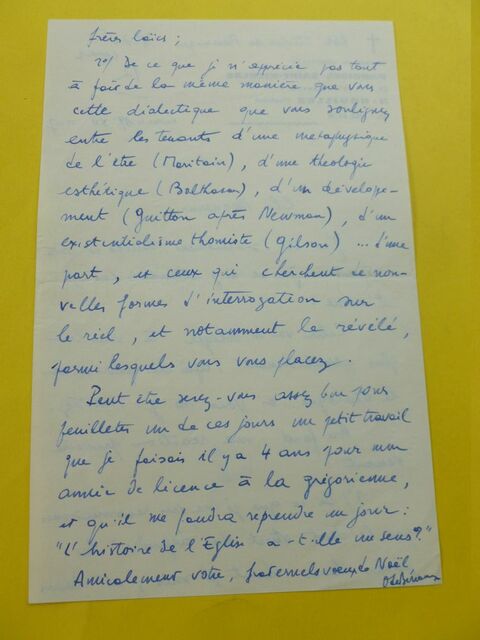 frères laïcs ;
2º/ De ce que je n'apprécie pas tout
à fait de la même manière que vous
cette dialectique que vous soulignez
entre les tenants d'une métaphysique
de l'être (Maritain), d'une théologie
esthétique (Balthasar), d'un dévelope-
ment (Guitton après Newman), d'un
existentialisme thomiste (Gilson) ... d'une
part, et ceux qui cherchent de nou-
velles formes d'interrogation sur
le réel, et notamment le révélé,
parmi lesquels vous vous placez.
Peut être serez-vous assez bon pour
feuilleter un de ces jours un petit travail
que je faisais il y a 4 ans pour mon
année de licence à la grégorienne,
et qu'il me faudra reprendre un jour :
"L'histoire de l'Eglise a-t-elle un sens ?"
Amicalement votre, fraternels voeux de Noël,